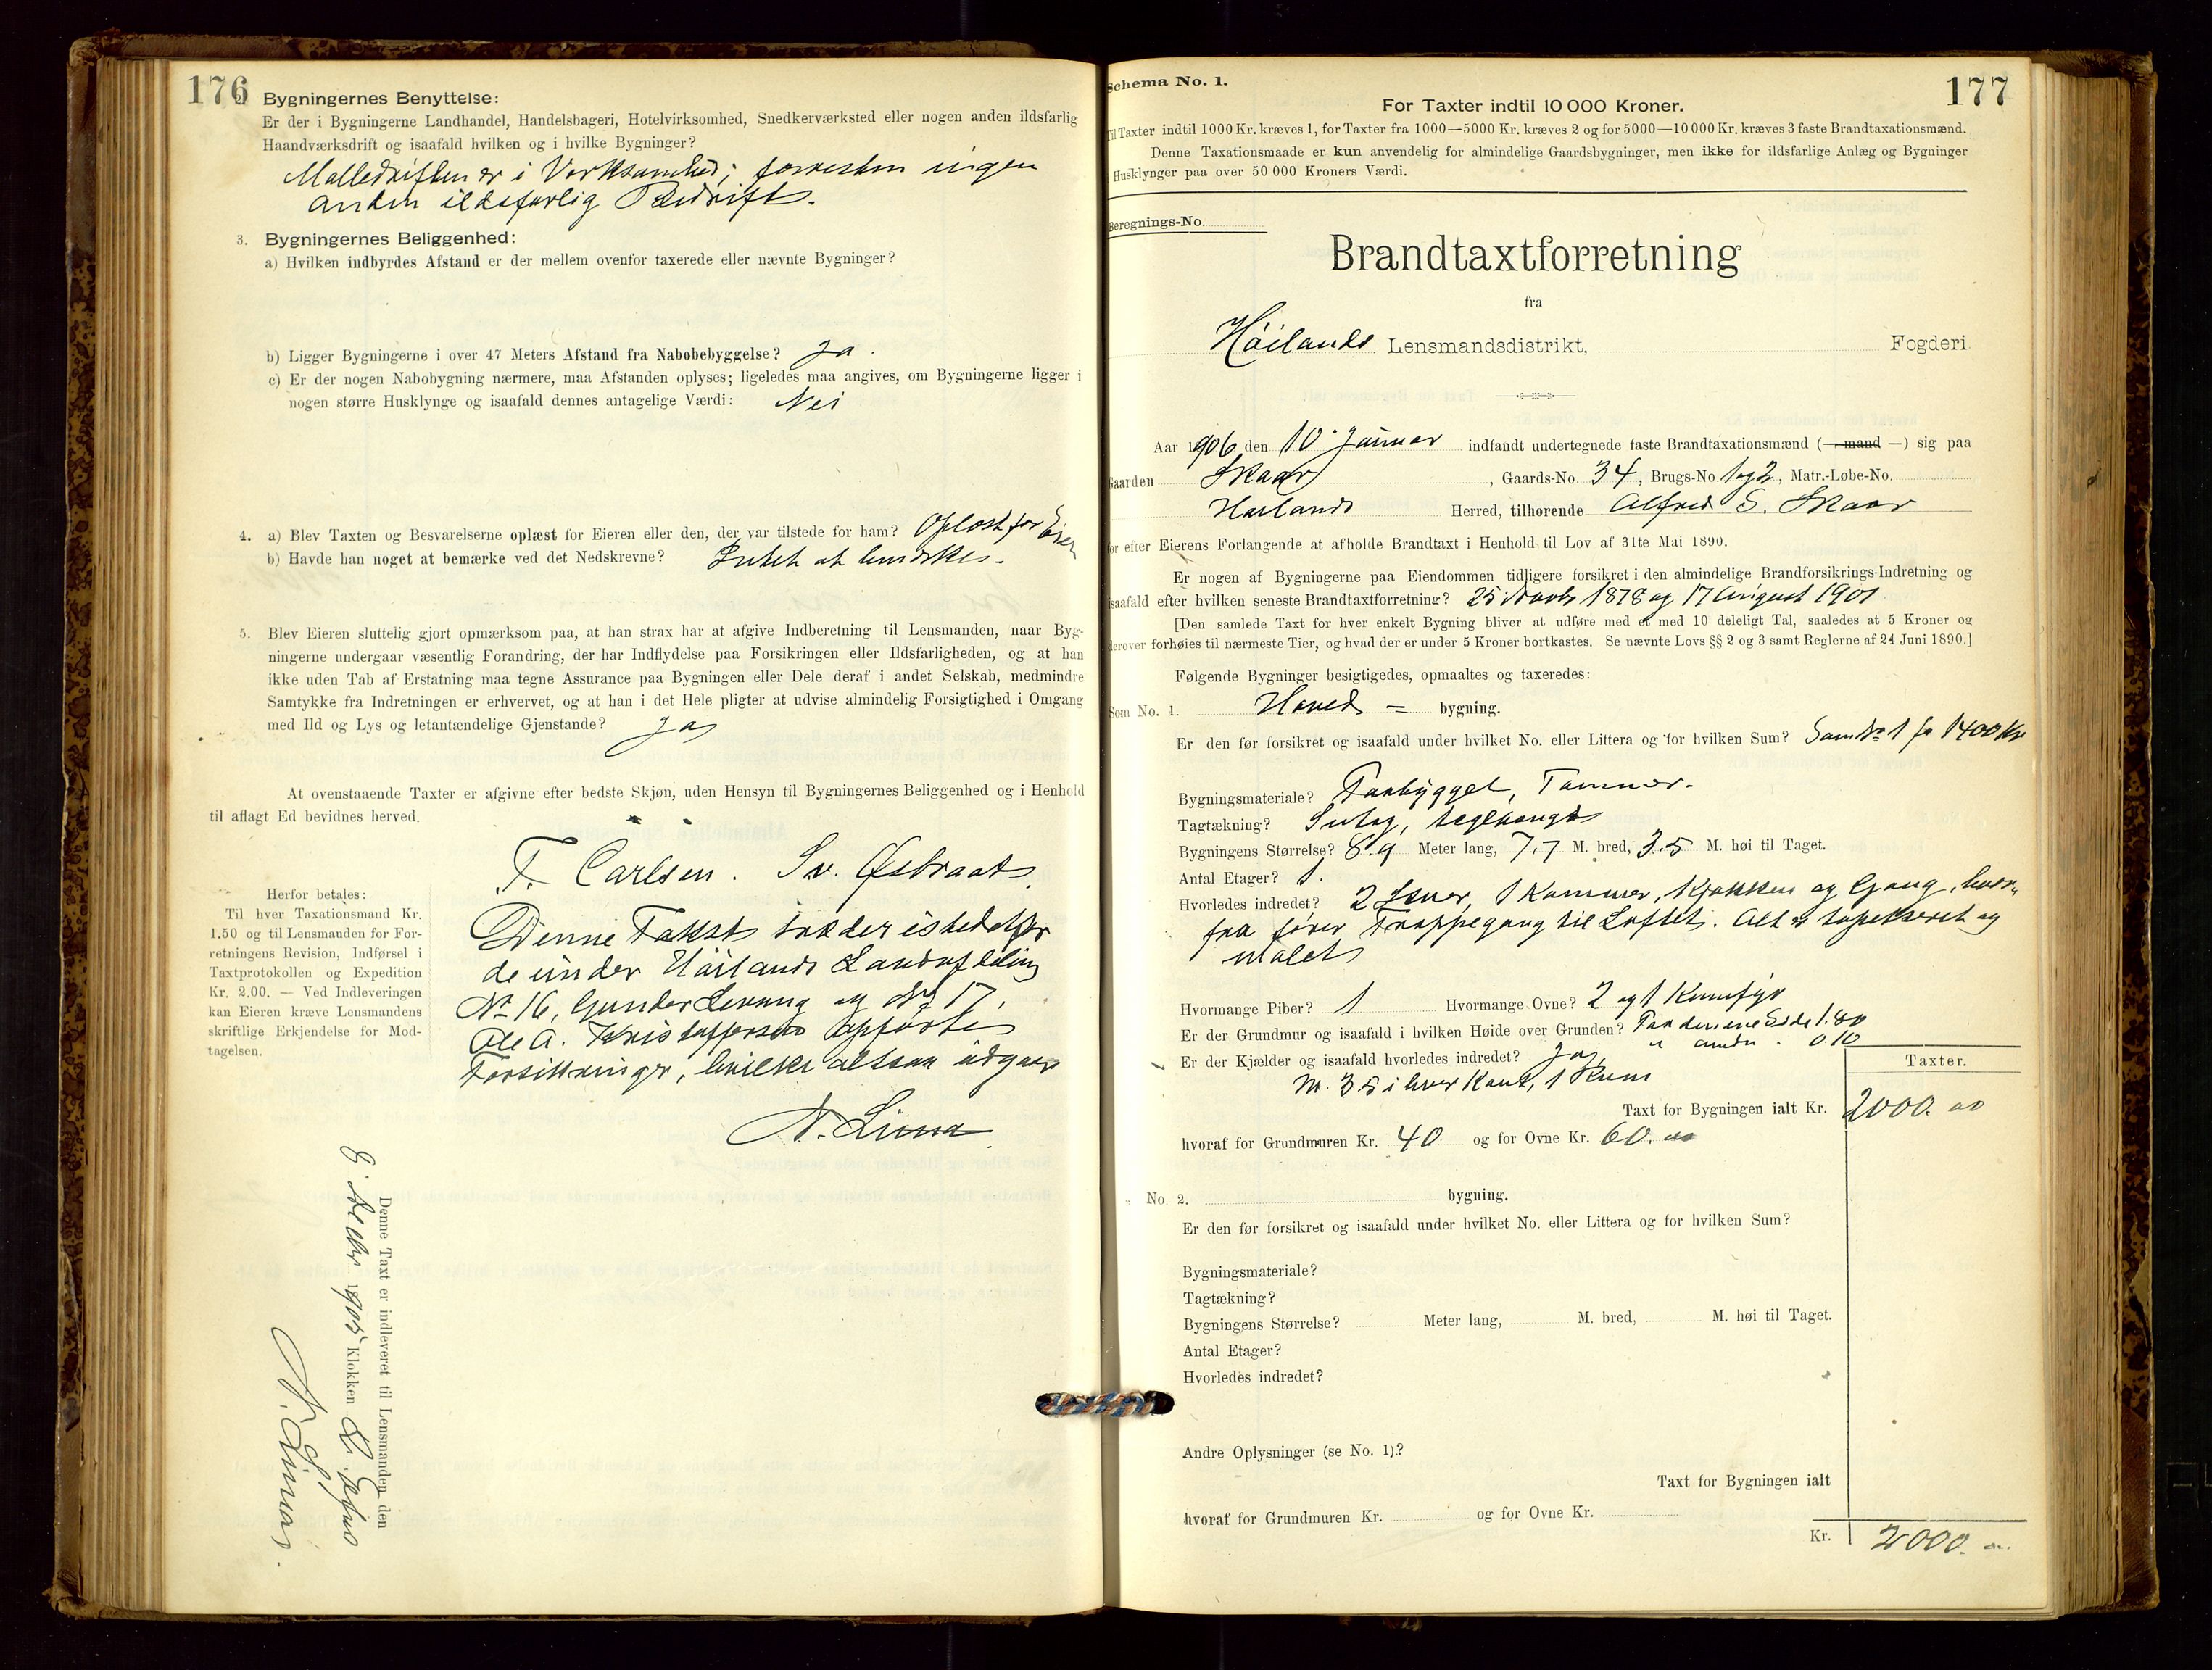 176
Bygningernes Benyttelse:
Er der i Bygningerne Landhandel, Handelsbageri, Hotelvirksomhed, Snedkerværksted eller nogen anden ildsfarlig
Haandværksdrift og isaafald hvilken og i hvilke Bygninger?
Mølledriften er i Virksomhed; forresten ingen
anden ildsfarlig Bedrift.
3. Bygningernes Beliggenhed:
a) Hvilken indbyrdes Afstand er der mellem ovenfor taxerede eller nævnte Bygninger?
b) Ligger Bygningerne i over 47 Meters Afstand fra Nabobebyggelse? Ja.
c) Er der nogen Nabobygning nærmere, maa Afstanden oplyses; ligeledes maa angives, om Bygningerne ligger i
nogen større Husklynge og isaafald dennes antagelige Værdi: Nei
4. a) Blev Taxten og Besvarelserne oplæst for Eieren eller den, der var tilstede for ham? Oplæst for Eieren
b) Havde han noget at bemærke ved det Nedskrevne? Intet at bemærke.
5. Blev Eieren sluttelig gjort opmærksom paa, at han strax har at afgive Indberetning til Lensmanden, naar Byg-
ningerne undergaar væsentlig Forandring, der har Indflydelse paa Forsikringen eller Ildsfarligheden, og at han
ikke uden Tab af Erstatning maa tegne Assurance paa Bygningen eller Dele deraf i andet Selskab, medmindre
Samtykke fra Indretningen er erhvervet, og at han i det Hele pligter at udvise almindelig Forsigtighed i Omgang
med Ild og Lys og letantændelige Gjenstande? Ja
At ovenstaaende Taxter er afgivne efter bedste Skjøn, uden Hensyn til Bygningernes Beliggenhed og i Henhold
til aflagt Ed bevidnes herved.
T. Carlsen. Sv. Østraat
Herfor betales:
Til hver Taxationsmand Kr.
1.50 og til Lensmanden for For-
retningens Revision, Indførsel i
Taxtprotokollen og Expedition
Kr. 2.00. — Ved Indleveringen
kan Eieren kræve Lensmandens
skriftlige Erkjendelse for Mod-
tagelsen.
Denne Takst træder istedetfor
de under Høilands Landafdeling
No 16, Gunder og No 17,
Ole A. Kristoffersen opførte
Forsikringer, hvilke altsaa udgaar
N. Lima
Denne Taxt er indleveret til Lensmanden den
8 1905 Klokken
N. Lima.
177
Schema No. 1.
For Taxter indtil 10 000 Kroner.
Til Taxter indtil 1000 Kr. kræves 1, for Taxter fra 1000—5000 Kr. kræves 2 og for 5000—10 000 Kr. kræves 3 faste Brandtaxationsmænd.
Denne Taxationsmaade er kun anvendelig for almindelige Gaardsbygninger, men ikke for ildsfarlige Anlæg og Bygninger
Husklynger paa over 50 000 Kroners Værdi.
Beregnings-No.
Brandtaxtforretning
fra
Høilands Lensmandsdistrikt, Fogderi
Aar 1906 den 10. Januar indfandt undertegnede faste Brandtaxationsmænd (— mand —) sig paa
Gaarden Skaar, Gaards-No. 34, Brugs-No. 1 og 2, Matr.-Løbe-No.
Høilands Herred, tilhørende Alfred S. Skaar
for efter Eierens Forlangende at afholde Brandtaxt i Henhold til Lov af 31te Mai 1890.
Er nogen af Bygningerne paa Eiendommen tidligere forsikret i den almindelige Brandforsikrings-Indretning og
isaafald efter hvilken seneste Brandtaxtforretning? 25 Novb 1878 og 17 August 1901
[Den samlede Taxt for hver enkelt Bygning bliver at udføre med et med 10 deleligt Tal, saaledes at 5 Kroner og
derover forhøies til nærmeste Tier, og hvad der er under 5 Kroner bortkastes. Se nævnte Lovs §§ 2 og 3 samt Reglerne af 24 Juni 1890.]
Følgende Bygninger besigtigedes, opmaaltes og taxeredes:
Som No. 1. Hoved = bygning.
Er den før forsikret og isaafald under hvilket No. eller Littera og for hvilken Sum? Som No 1 for 1400 Kr
Bygningsmateriale? Tømmer.
Tagtækning? Sutag, teglhængt
Bygningens Størrelse? 8.9 Meter lang, 7.7 M. bred, 3.5 M. høi til Taget.
Antal Etager? 1.
Hvorledes indredet? 2 Stuer, 1 Kammer, Kjøkken og Gang, hvor-
fra fører Trappegang til Loftet. Alt er tapetseret og
malet
Hvormange Piber? 1 Hvormange Ovne? 2 og 1 Komfyr
Er der Grundmur og isaafald i hvilken Høide over Grunden? Paa den ene Side 1.80
" anden " 0.10
Er der Kjælder og isaafald hvorledes indredet? Ja,
M. 3.5 i hver Kant, 1 Rum
Taxter.
Taxt for Bygningen ialt Kr. 2000. 00
hvoraf for Grundmuren Kr. 40 og for Ovne Kr. 60. 00
" No. 2. bygning.
Er den før forsikret og isaafald under hvilket No. eller Littera og for hvilken Sum?
Bygningsmateriale?
Tagtækning?
Bygningens Størrelse? Meter lang, M. bred, M. høi til Taget.
Antal Etager?
Hvorledes indredet?
Andre Oplysninger (se No. 1)?
Taxt for Bygningen ialt
hvoraf for Grundmuren Kr. og for Ovne Kr.
Kr. 2000. 00